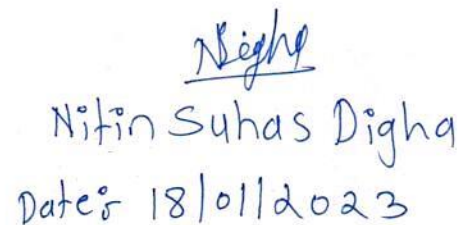 NDigha
Nitin Suhas Digha
Date: 18/01/2023